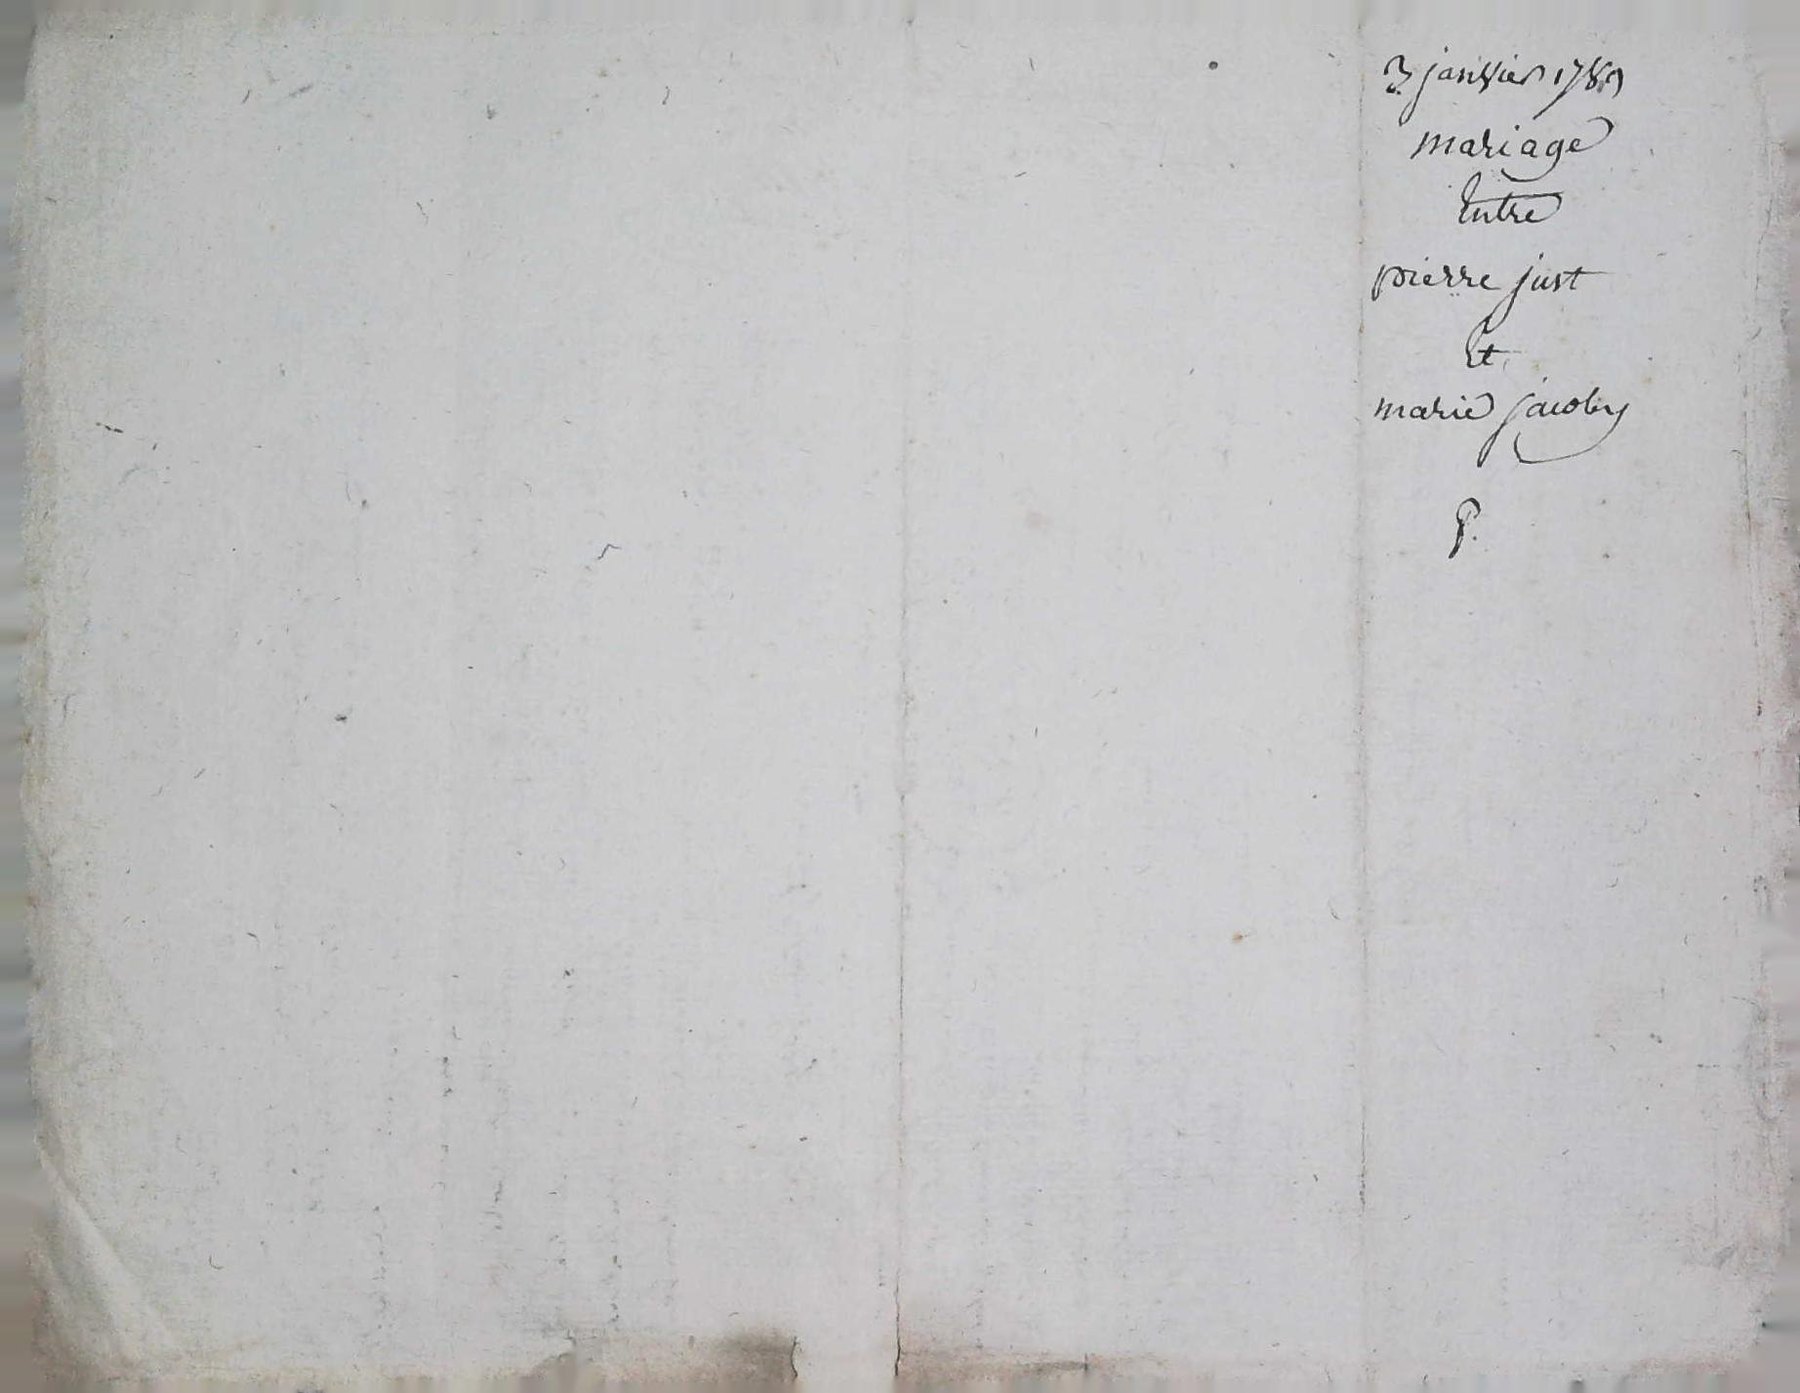 3 janvier 1789
mariage
Entre
pierre just
Et
marie jacoby
P.